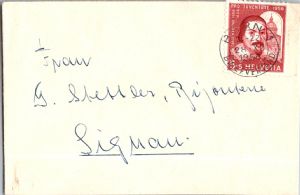 PRO JUVENTUTE 1956
HELVETIA
Frau
G. Stettler, Bijouterie
Signau.